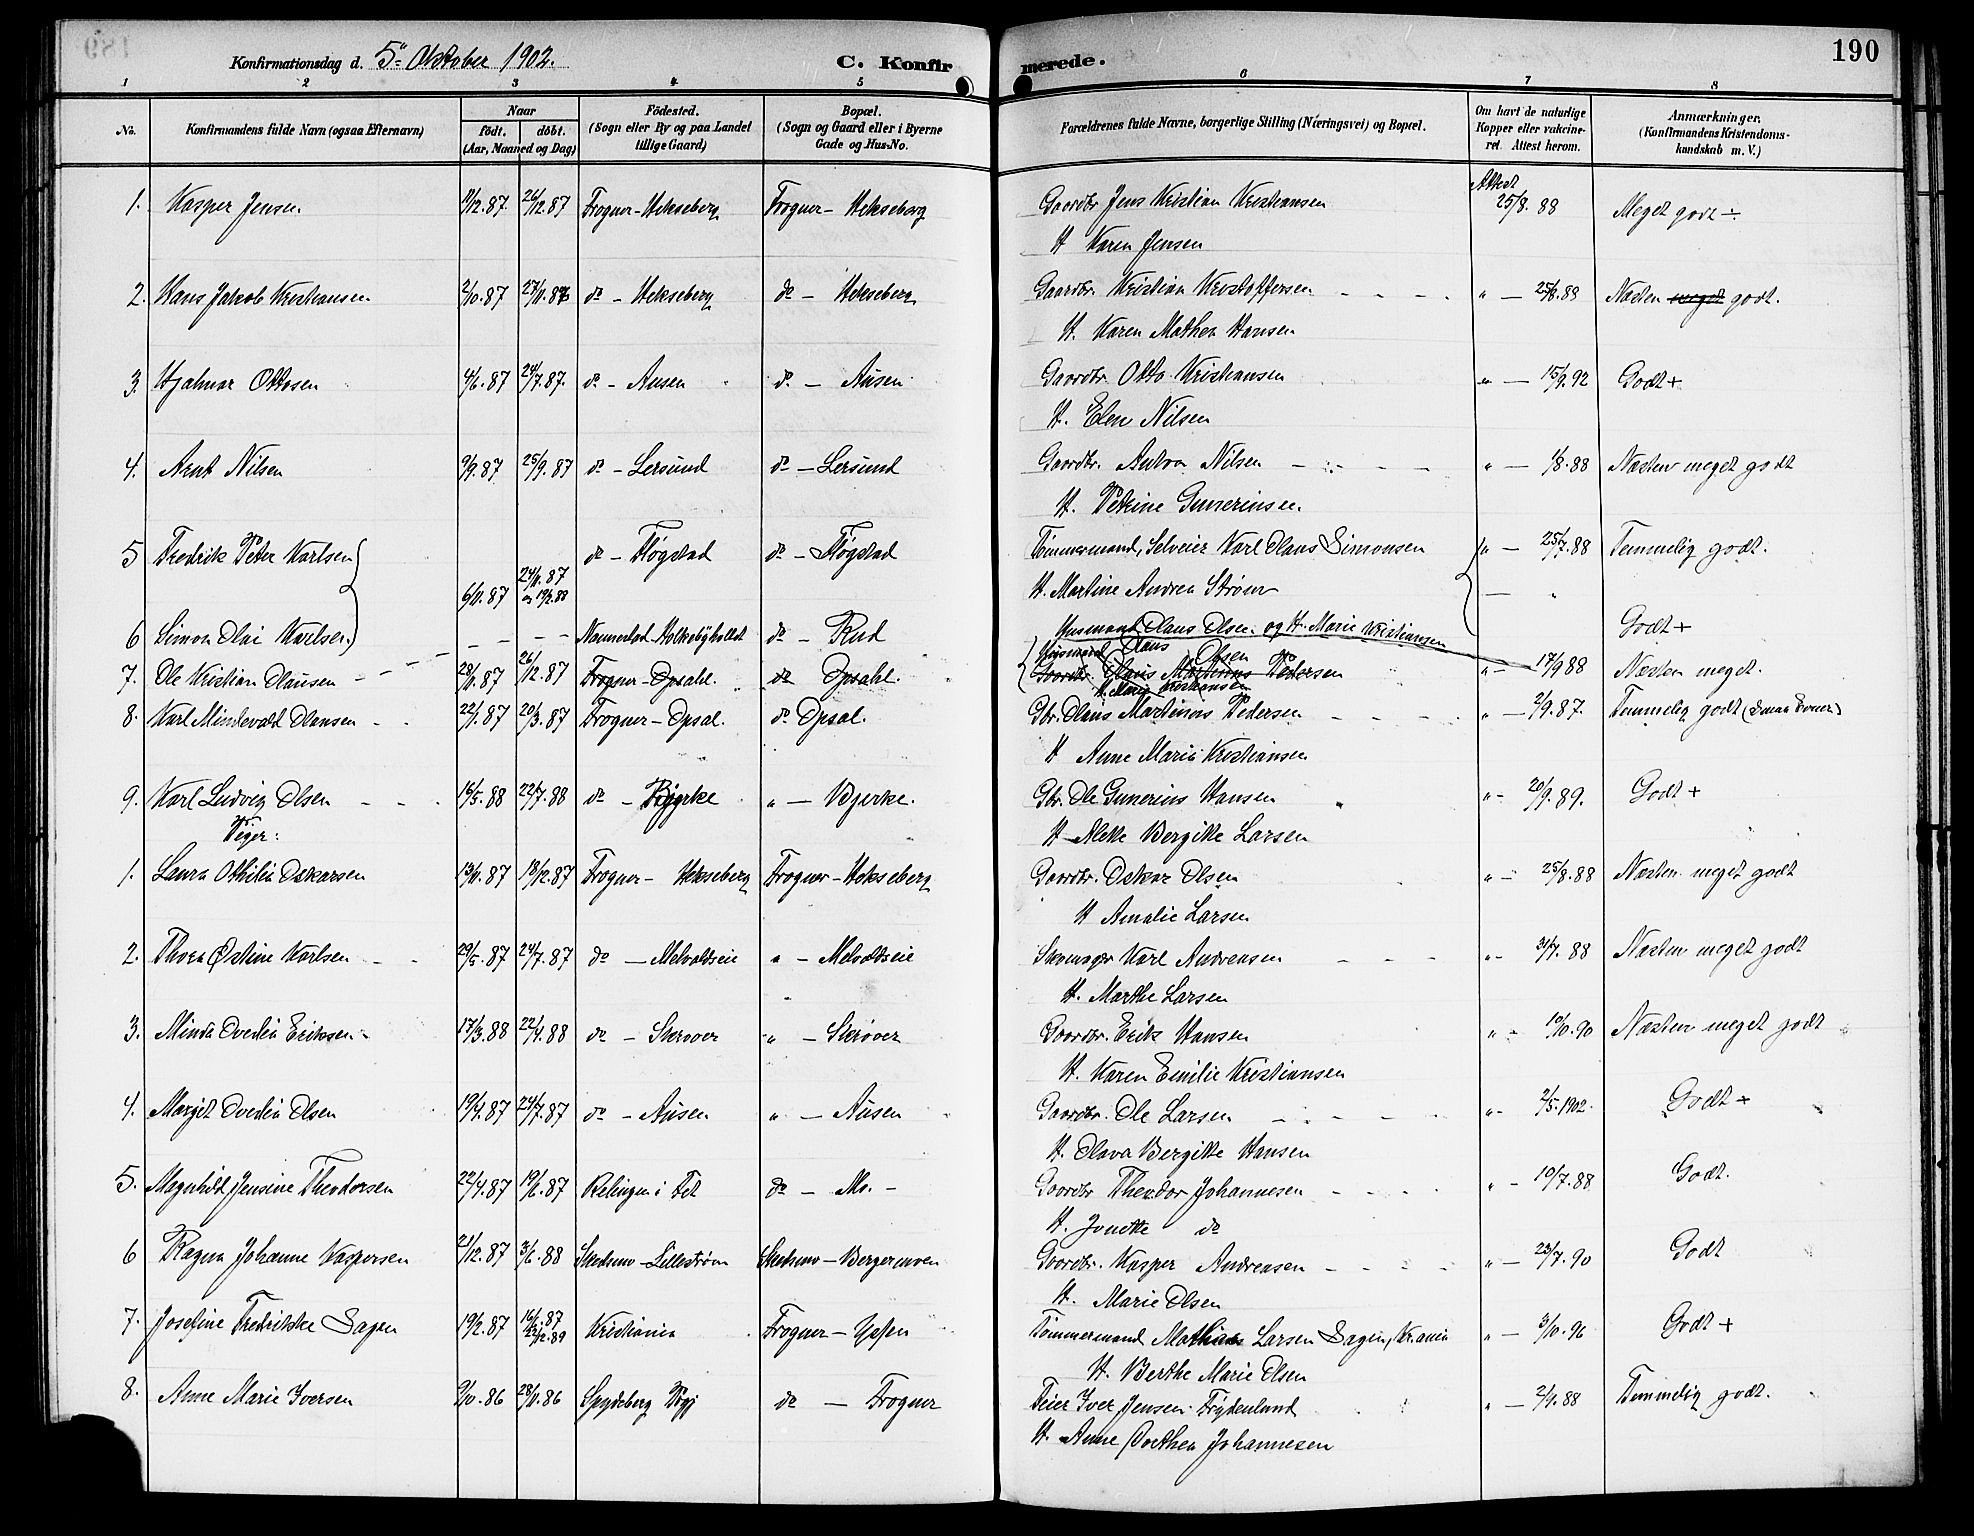 189
190
Konfirmationsdag d. 5" Oktober 1902. C. Konfirmerede.
1 2 3 4 5 6 7 8
No. Konfirmandens fulde Navn (ogsaa Efternavn) Naar født. døbt. (Aar, Maaned og Dag) Födested. (Sogn eller By og paa Landet tillige Gaard) Bopæl. (Sogn og Gaard eller i Byerne Gade og Hus-No. Forældrenes fulde Navne, borgerlige Stilling (Næringsvei) og Bopæl. Om havt de naturlige Kopper eller vakcineret. Attest herom. Anmærkninger. (Konfirmandens Kristendomskundskab m. V.)
1. Kasper Jensen 11/12.87 26/12.87 Frogner-Hekseberg Frogner-Hekseberg Gaardbr Jens Kristian Kristiansen Attest 25/8.88 Meget godt ÷
H Karen Jensen
2. Hans Jakob Kristiansen 2/10.87 27/11.87 do - Hekseberg do - Hekseberg Gaardbr. Kristian Kristoffersen " - 25/8.88 Næsten meget godt.
H. Karen Mathea Hansen
3. Hjalmar Ottosen 4/6.87 24/7.87. do - Ausen do - Ausen Gaardbr. Otto Kristiansen " - 15/9.92 Godt +
H. Elen Nilsen
4. Arnt Nilsen 9/9.87 25/9.87 do - Lersund do - Lersund Gaardbr. Anton Nilsen " - 1/8.88 Næsten meget godt
H. Petrine Gunerinsen.
5 Fredrik Peter Karlsen do - Fløgstad do - Fløgstad Tømmermand, Selveier Karl Olaus Simonsen " - 25/7.88 Temmelig godt.
6/11.87 24/11.87 og 19/2.88 H. Martine Andrea Strøm - "
6 Simon Olai Karlsen. - - - Nannestad Holkebyholtet do - Rud Husmand Olaus Olsen og H. Marie Kristiansen Godt +
7. Ole Kristian Olausen 28/11.87 26/12.87 Frogner-Opsahl. do Opsahl. Husmand Olaus Olsen Gaardbr. Olaus Martinius Pedersen H. Marie Kristiansen " - 17/9 88 Næsten meget.
8. Karl Mindevald Olausen 22/1.87 20/3.87 Frogner-Opsal. do Opsal. Gbr. Olaus Martinius Pedersen " - 2/9.87. Temmelig godt
H Anne Marie Kristiansen
9. Karl Ludvig Olsen 16/5.88 22/7.88 do - Bjerke " - Bjerke. Gbr. Ole Gunerius Hansen " - 20/9.89. Godt +
H Alette Bergitte Larsen
Piger:
1. Laura Othilia Oskarsen 13/11.87 18/12.87 Frogner - Hekseberg Frogner-Hekseberg Gaardbr. Oskar Olsen " - 25/8.88 Næsten meget godt
H Amalie Larsen
2. Thora Østine Karlsen 29/5.87 24/7.87 do - Melvoldseie " - Melvoldseie Skomager Karl Andreasen " - 31/7.88 Næsten meget godt
H. Marthe Larsen
3. Minda Ovedia Eriksen 17/3.88 22/4.88 do - Skrøver " - Skrøver Gaardbr. Erik Hansen " - 10/10.90 Næsten meget godt
H. Karen Emilie Kristiansen
4. Margit Ovedia Olsen 19/4.87 24/7.87 do - Ausen " - Ausen Gaardbr. Ole Larsen " - 2/5.1902. Godt +
H. Olava Bergitte Hansen
5. Magnhild Jensine Theodorsen 22/4.87 19/6.87 Relingen i Fet do - Mo. - Gaardbr Theodor Johannesen " - 10/7.88 Godt.
H. Jonette do
6 Ragna Johanne Kaspersen 21/12.87 3/6.88 Skedsmo-Lillestrøm Skedsmo-Bergermoen Gaardbr. Kasper Andreasen " - 23/7.90 Godt
H. Marie Olsen
7. Josefine Fredrikke Sagen 19/2.87 Kristiania Frogner - Tømmermand Mathias Larsen Sagen, Kr.ania " - 3/10.96 Godt +
H. Berthe Marie Olsen
8. Anne Marie Iversen 9/10.86 28/11.86 Spydeberg do - Frogner Feier Iver Jensen Frydenlund " - 2/9.88 Temmelig godt.
H. Anne Dorthea Johannesen